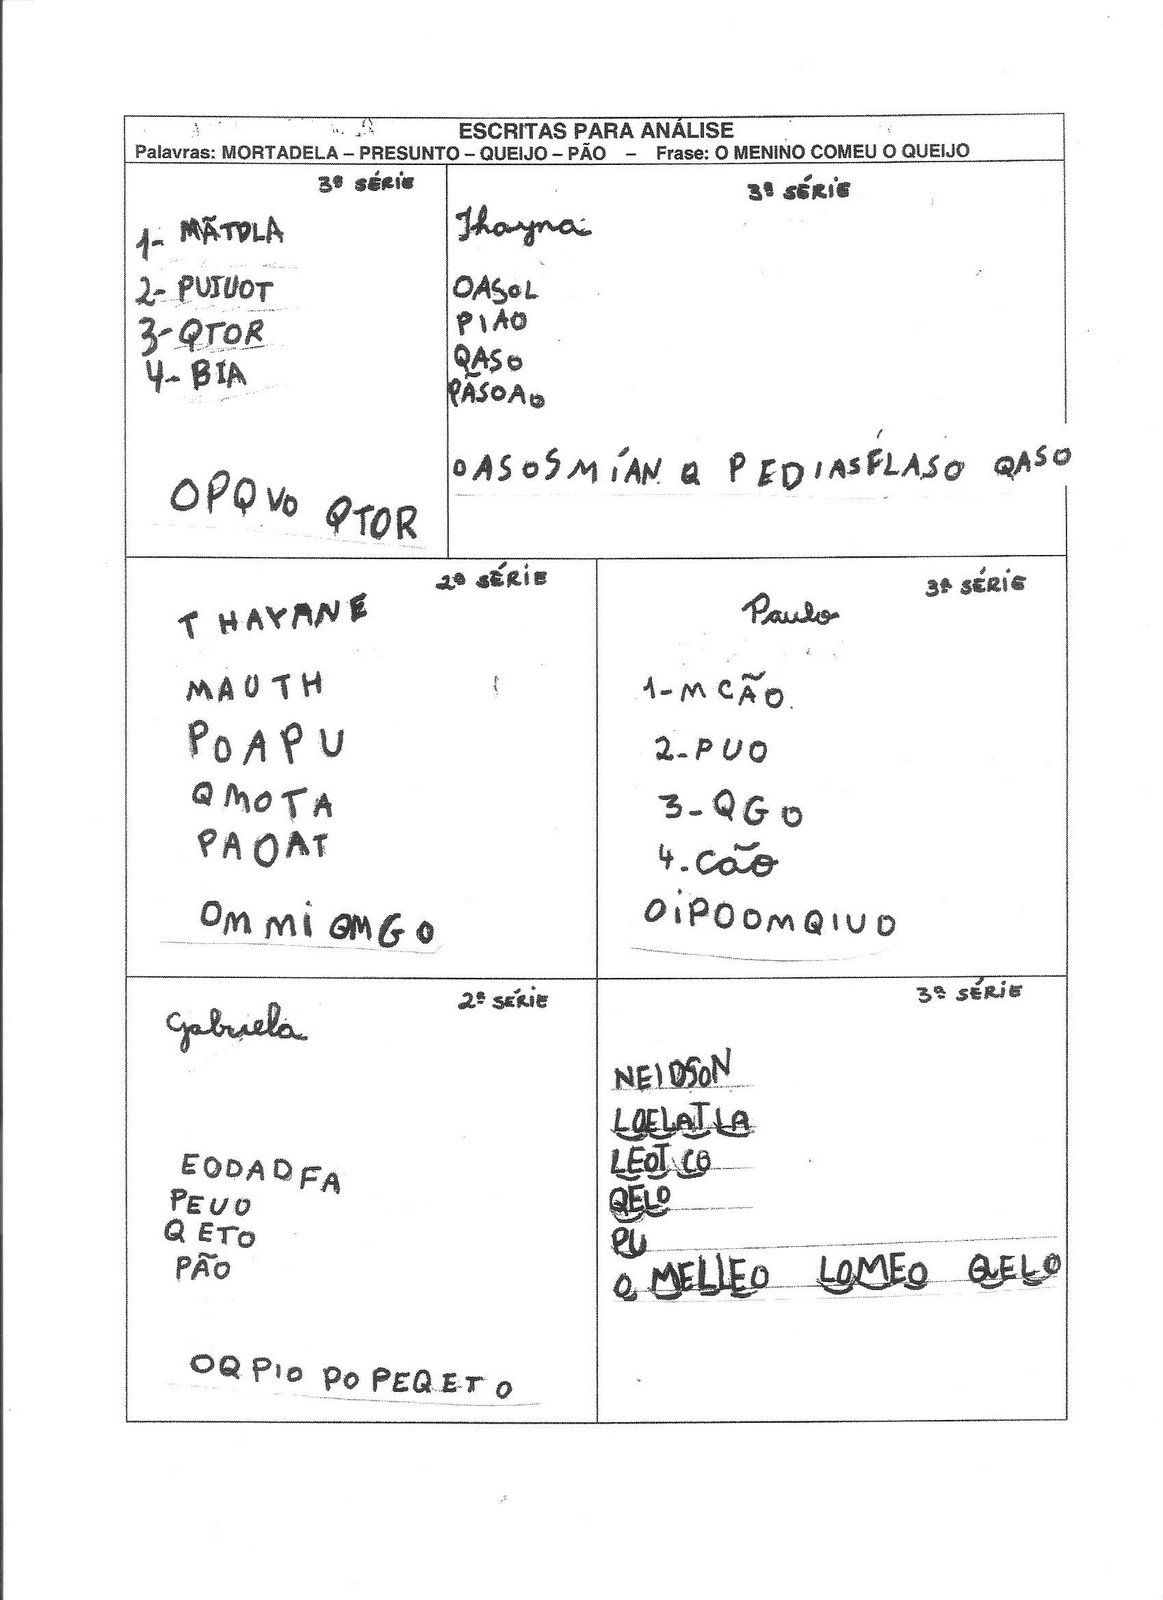 ESCRITAS PARA ANÁLISE
Palavras: MORTADELA – PRESUNTO – QUEIJO – PÃO – Frase: O MENINO COMEU O QUEIJO
3ª SÉRIE
1- MÃTOLA
2- PUIUOT
3- QTOR
4- BIA
OPQVO QTOR
3ª SÉRIE
Thayna
OASOL
PIAO
QASO
PÃSOAO
OASOSMÍAN Q PEDIASFLASO QASO
2ª SÉRIE
THAYANE
MAUTH
POAPU
QMOTA
PAOAT
OMMIQMGO
3ª SÉRIE
Paulo
1-MCÃO.
2-PUO
3-QGO
4.CÃO
OiPOOMQIUO
2ª SÉRIE
Gabriela
EODADFA
PEUO
QETO
PÃO
OQPIO POPEQETO
3ª SÉRIE
NEIDSON
LOELATLA
LEOTCO
QELO
PU
O MELLEO LOMEO QELO